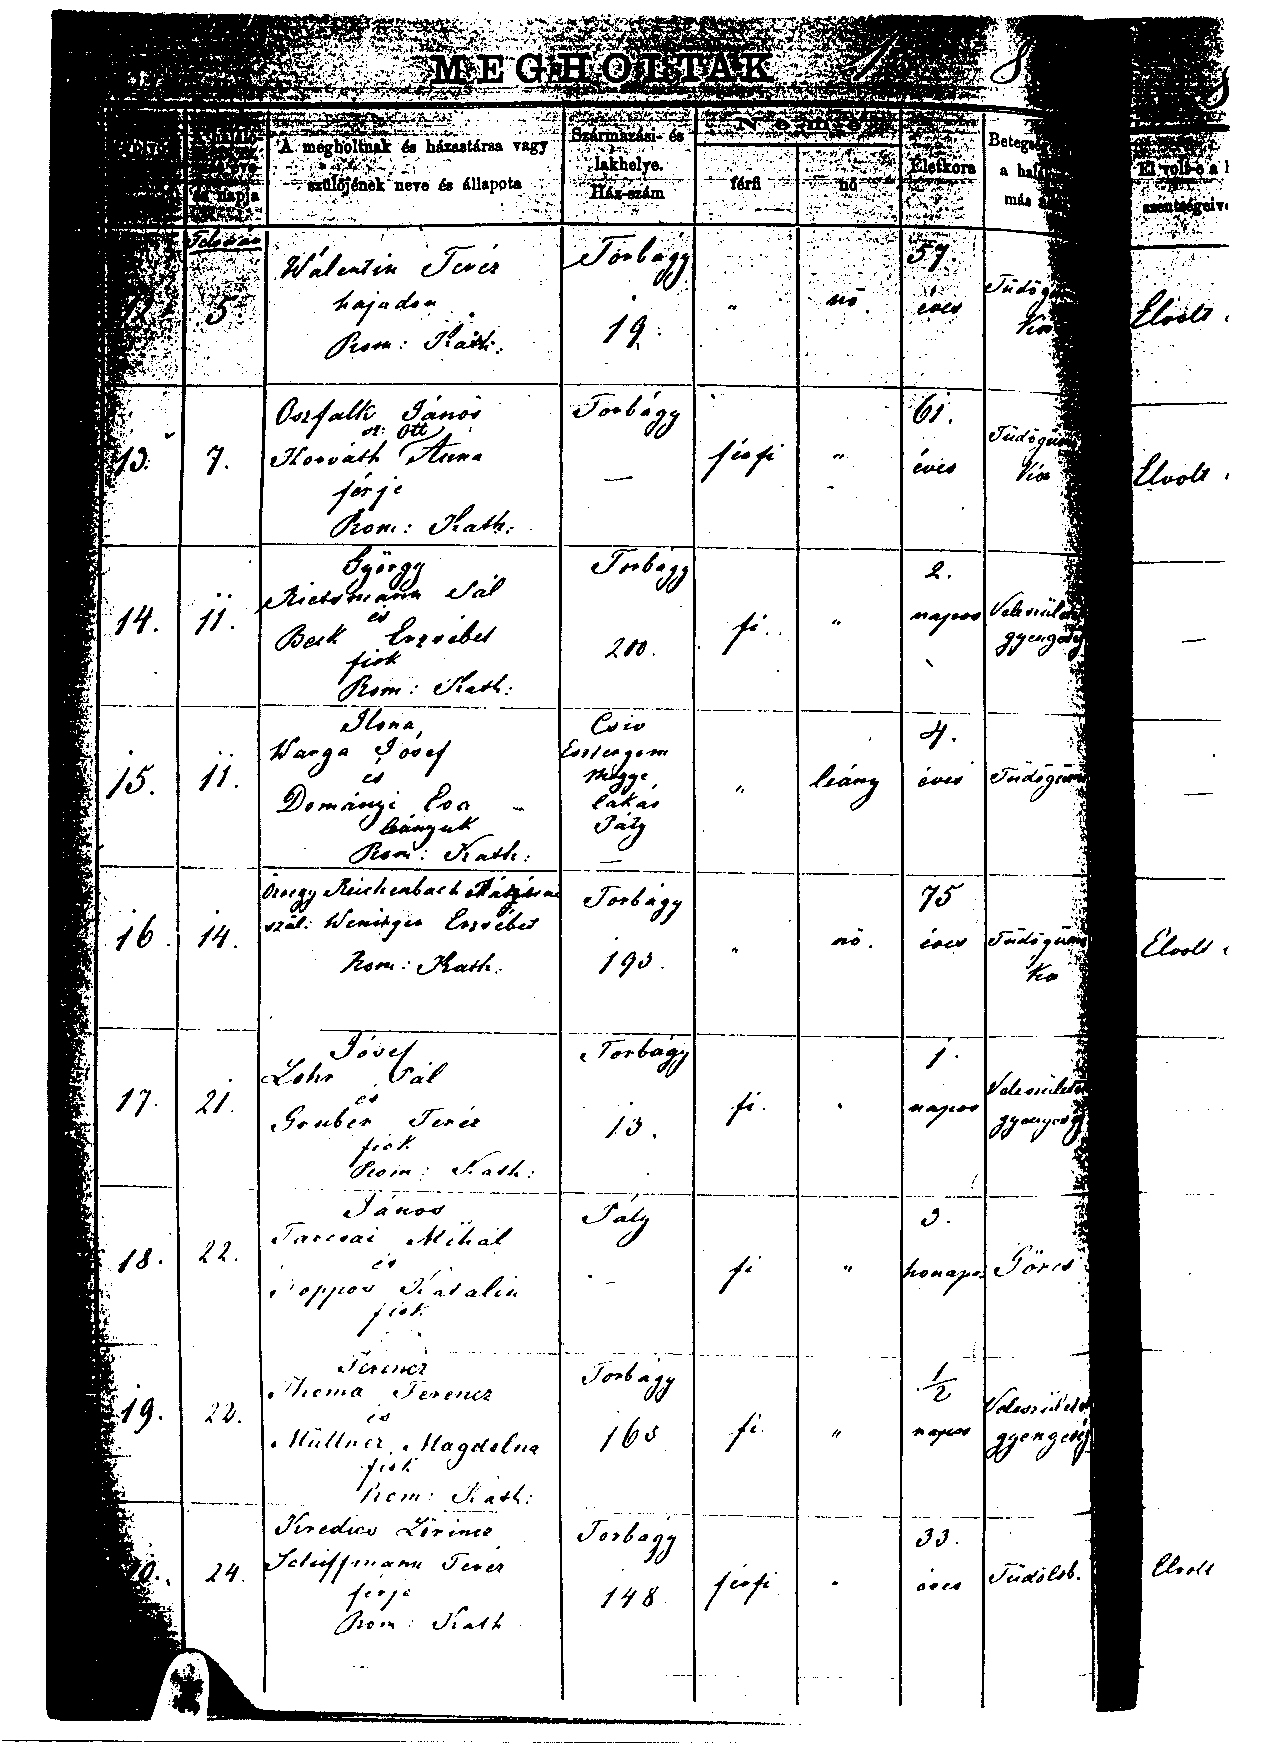 MEGHOLTAK 18
A megholtnak és házastársa vagy szülőjének neve és állapota
Származási- és lakhelye. Ház-szám
férfi
nő
Életkora
Február
5
Wálentin Teréz
hajadon
Rom: Kath:
Torbágy
19.
"
nő.
57.
éves
Elvolt
13.
7.
Oszfalk János
Ott
Horváth Anna
férje
Rom: Kath:
Torbágy
—
férfi
"
61.
éves
Tüdőgüm
kór
Elvolt
14.
11.
György
Pál
és
Beck Erzsébet
fiok
Rom: Kath:
Torbágy
200.
fi.
"
2.
napos
Veleszületet
gyengeség
—
15.
11.
Ilona
Warga Jósef
és
Dományi Éva
leányuk
Rom: Kath:
Csiv
Esztergom
megye
lakás
Páty
—
"
leány
4.
éves
Tüdőgüm
—
16.
14.
Özvegy Reichenbach
szül: Weninger Erzsébet
Rom: Kath:
Torbágy
193.
"
nő.
75
éves
Tüdőgüm
kór
Elvolt
17.
21.
Jósef
Lohr Pál
és
Gruber Teréz
fiok
Rom: Kath:
Torbágy
13.
fi.
"
1.
napos
Veleszületet
gyengeség
18.
22.
János
Tarcsai Mihál
és
Katalin
fiok
Páty
—
fi
"
3.
honapos
Görcs
19.
22.
Ferencz
Thoma Ferencz
és
Müllner Magdolna
fiok
Rom: Kath:
Torbágy
163
fi.
"
1/2
napos
Veleszületet
gyengeség
20.
24.
Kredics Lőrincz
Schiffmann Teréz
férje
Rom: Kath
Torbágy
148
férfi
"
33.
éves
Tüdőlob.
Elvolt